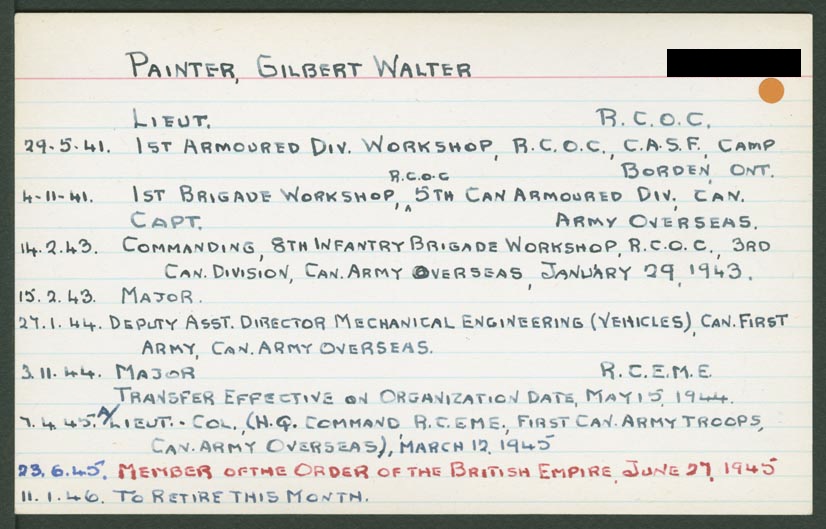 PAINTER, GILBERT WALTER
LIEUT. R.C.O.C.
29.5.41. 1ST ARMOURED DIV. WORKSHOP, R.C.O.C., C.A.S.F., CAMP
BORDEN, ONT.
R.C.O.C
4-11-41. 1ST BRIGADE WORKSHOP, ^ 5TH CAN ARMOURED DIV., CAN.
CAPT. ARMY OVERSEAS.
14.2.43. COMMANDING, 8TH INFANTRY BRIGADE WORKSHOP, R.C.O.C., 3RD
CAN. DIVISION, CAN. ARMY OVERSEAS, JANUARY 29, 1943.
15.2.43. MAJOR.
27.1.44. DEPUTY ASST. DIRECTOR MECHANICAL ENGINEERING (VEHICLES), CAN. FIRST
ARMY, CAN. ARMY OVERSEAS.
3.11.44. MAJOR R.C.E.M.E.
TRANSFER EFFECTIVE ON ORGANIZATION DATE, MAY 15, 1944.
7.4.45. A/LIEUT.-COL., (H.Q. COMMAND R.C.E.M.E., FIRST CAN. ARMY TROOPS,
CAN. ARMY OVERSEAS), MARCH 12, 1945
23.6.45. MEMBER OF THE ORDER OF THE BRITISH EMPIRE, JUNE 27, 1945
11.1.46. TO RETIRE THIS MONTH.